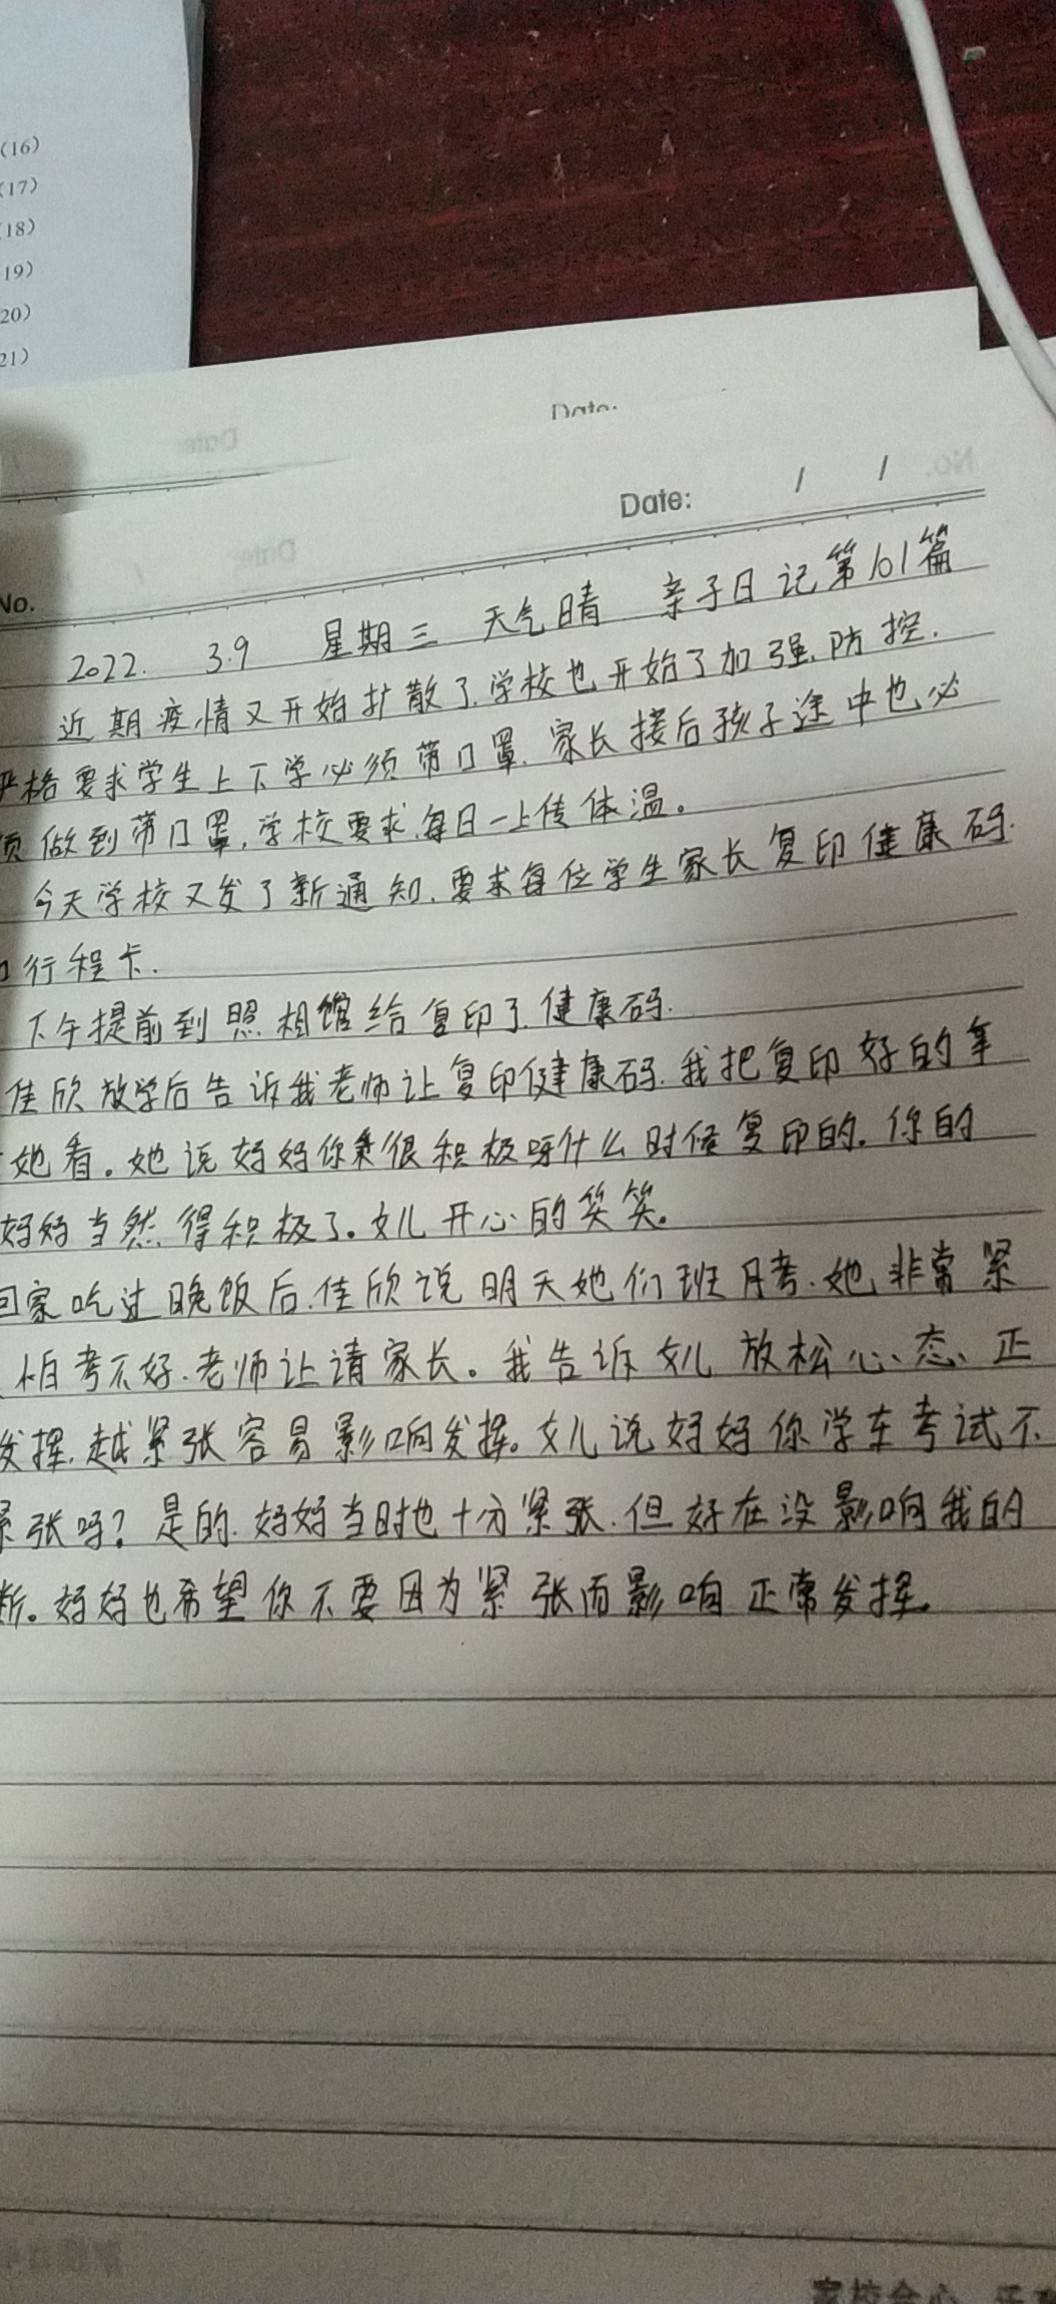 (16)
(17)
(18)
19)
20)
21)
Date:
Date: / /
No.
2022. 3.9 星期三 天气晴 亲子日记第101篇
近期疫情又开始扩散了.学校也开始了加强.防控.
严格要求学生上下学必须带口罩.家长接后孩子途中也必
须做到带口罩,学校要求.每日一上传体温。
今天学校又发了新通知.要求每位学生家长复印健康码.
行程卡.
下午提前到照相馆给复印了.健康码.
佳欣放学后告诉我老师让复印健康码.我把复印好的拿
她看。她说妈妈你很积极呀什么时候复印的.你的
妈妈当然得积极了。女儿开心的笑笑。
回家吃过晚饭后.佳欣说明天她们班月考.她非常紧
怕考不好.老师让请家长。我告诉女儿放松心态、正
发挥.越紧张容易影响发挥。女儿说妈妈你学车考试不
紧张吗?是的.妈妈当时也十分紧张.但好在没影响我的
断。妈妈也希望你不要因为紧张而影响正常发挥。
家校合心